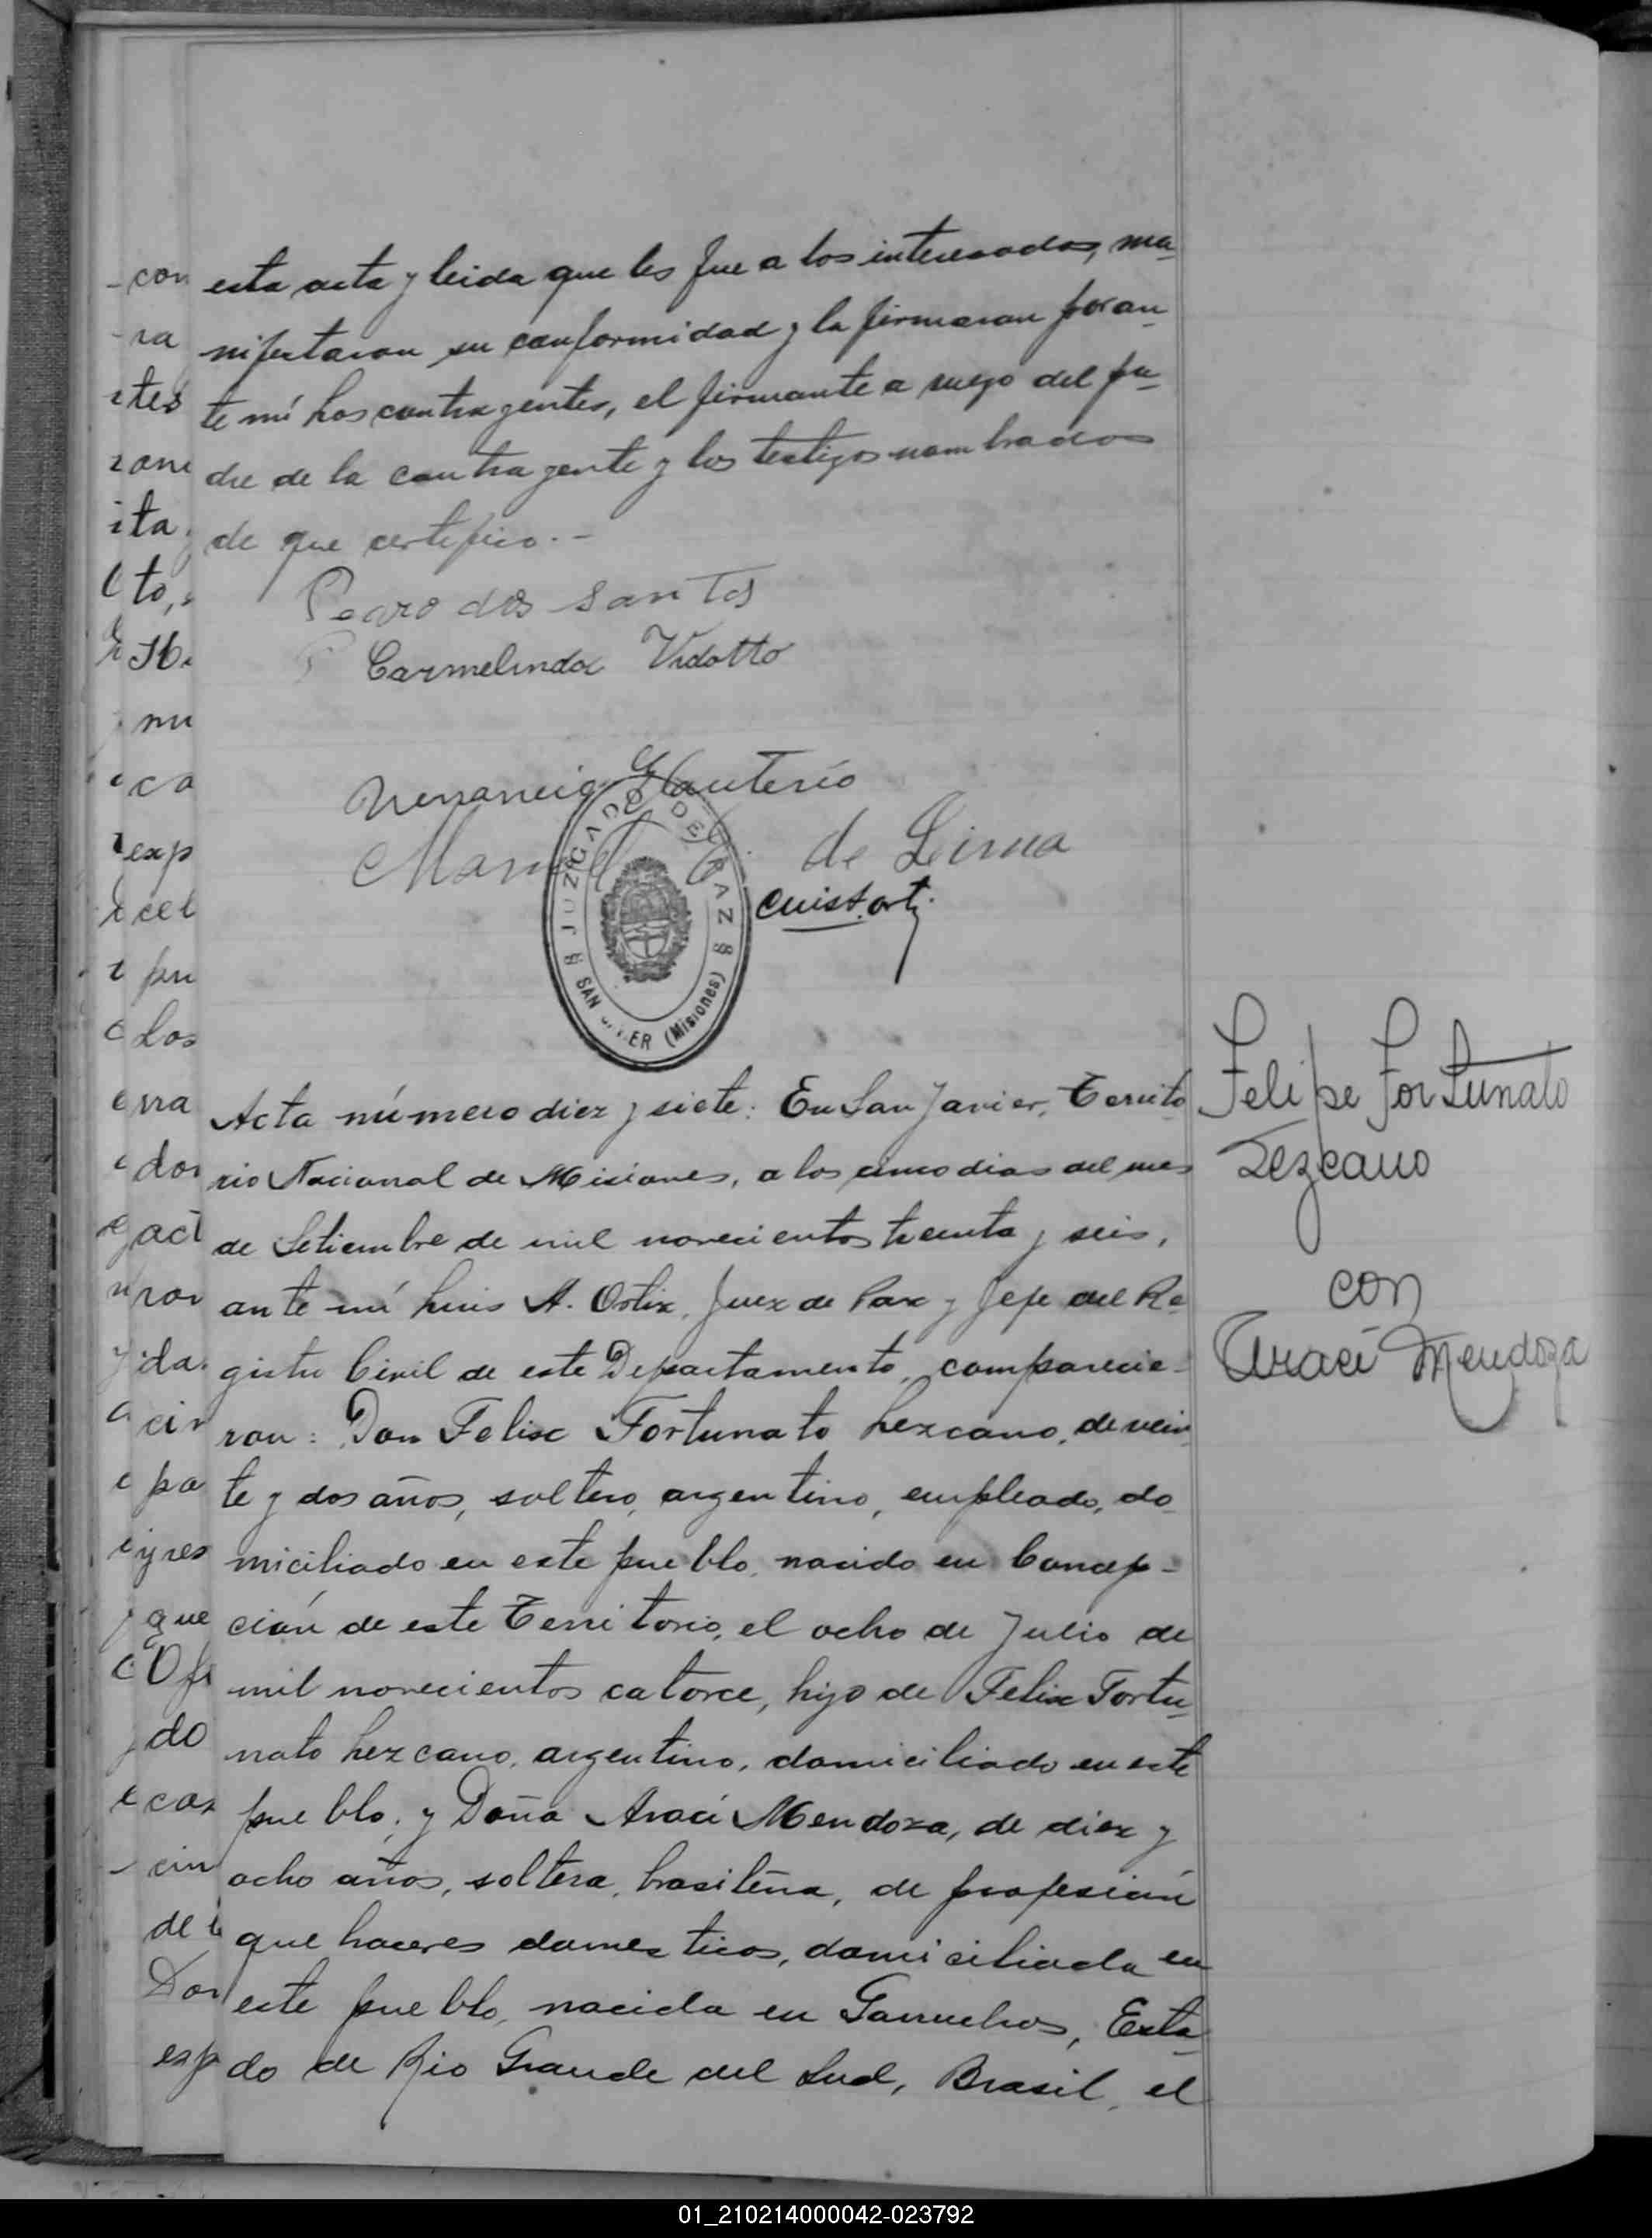 esta acta y leida que les fue a los interesados, ma-
nifestaron su conformidad y la firmaron por an-
te mí los contragentes, el firmante a ruego del pa-
dre de la contragente y los testigos nombrados
de que certifico.-
Pedro dos santos
Carmelinda Vidotto
Venancio Glauterio
Manuel de Lima
JUZGADO DE PAZ
SAN JAVIER (Misiones)
Acta número diez y siete: En San Javier, Territo-
rio Nacional de Misiones, a los cinco dias del mes
de Setiembre de mil novecientos treinta y seis,
ante mí Luis A. Ortiz, Juez de Paz y Jefe del Re-
gistro Civil de este Departamento, comparecie-
ron: Don Felix Fortunato Lezcano, de vein-
te y dos años, soltero, argentino, empleado, do-
miciliado en este pueblo, nacido en Concep-
ción de este Territorio, el ocho de Julio de
mil novecientos catorce, hijo de Felix Fortu-
nato Lezcano, argentino, domiciliado en este
pueblo; y Doña Araci Mendoza, de diez y
ocho años, soltera, brasileña, de profesión
que haceres domesticos, domiciliada en
este pueblo, nacida en Garruchos, Esta-
do de Rio Grande del Sud, Brasil, el
Felipe Fortunato
Lezcano
con
Araci Mendoza
01_210214000042-023792